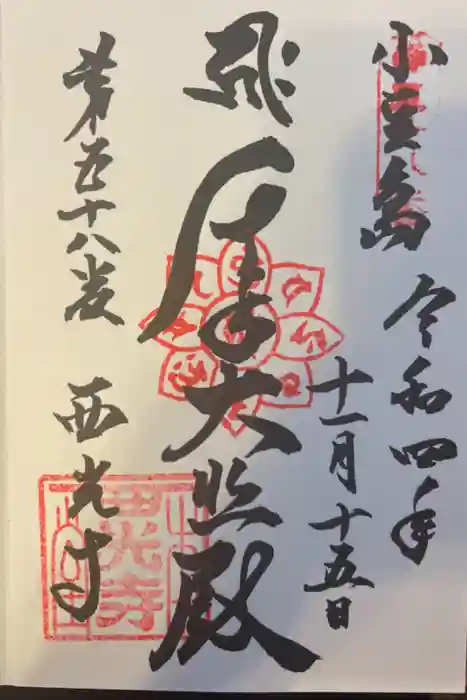 小豆島
令和四年
十一月十五日
大照殿
第五十八番
西光寺
西光寺